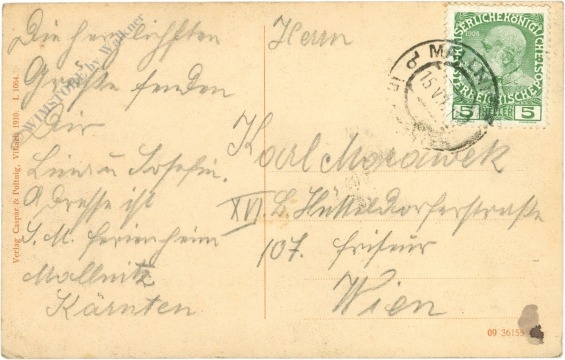 Die herzlichsten
Grüße senden
Dir
u. Josefin.
Adresse ist
Ferienheim
Mallnitz
Kärnten
Herrn
Karl Morawek
Hütteldorferstraße
107. Friseur
Wien
WIMSTORE by Walkner
Verlag Caspar & Pollnig, Villach 1910. L 1084.
KAISERLICHE KÖNIGLICHE
ÖSTERREICHISCHE POST
1908
5 HELLER 5
MALLNITZ
15 VI
09 36155